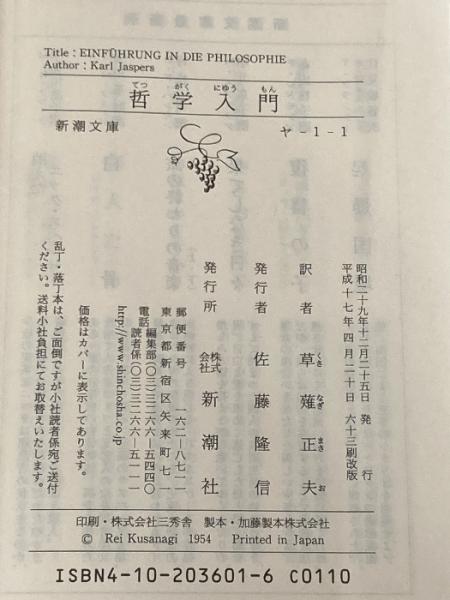 Title : EINFÜHRUNG IN DIE PHILOSOPHIE
Author : Karl Jaspers
てつ がく にゅう もん
哲学入門
新潮文庫
ヤ-1-1
昭和二十九年十二月二十五日 発行
平成十七年四月二十日 六十三刷改版
訳者 草薙正夫
くさ なぎ まさ お
発行者 佐藤隆信
発行所 株式会社 新潮社
郵便番号 一六二-八七一一
東京都新宿区矢来町七一
電話 編集部(〇三)三二六六-五四四〇
読者係(〇三)三二六六-五一一一
http://www.shinchosha.co.jp
価格はカバーに表示してあります。
乱丁・落丁本は、ご面倒ですが小社読者係宛ご送付
ください。送料小社負担にてお取替えいたします。
印刷・株式会社三秀舎 製本・加藤製本株式会社
© Rei Kusanagi 1954 Printed in Japan
ISBN4-10-203601-6 C0110